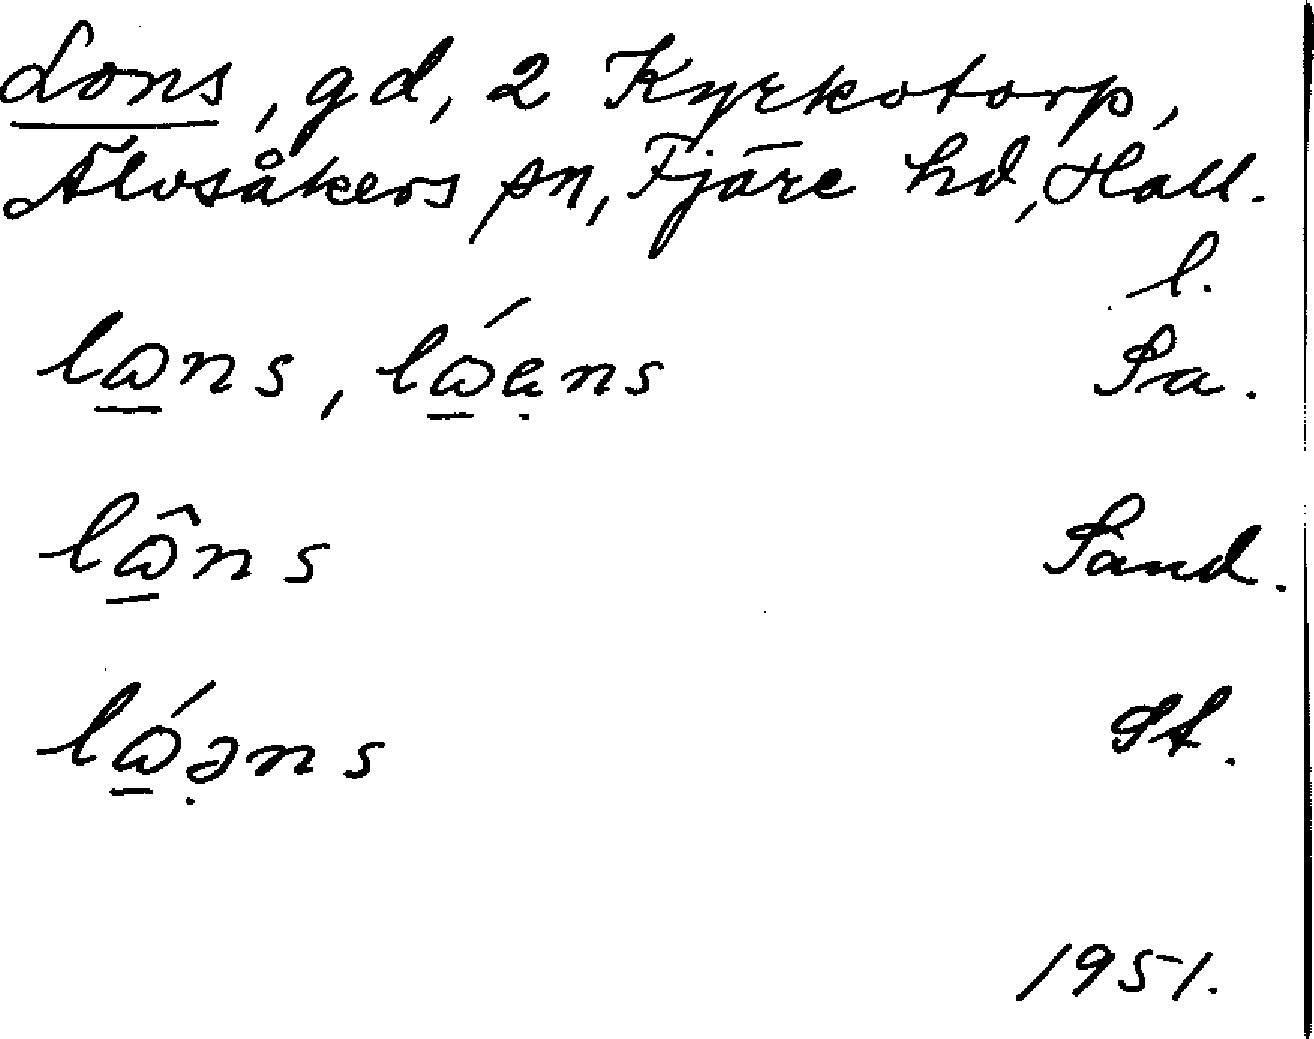 Lons, gd, 2 Kyrkotorp,
Älvsåkers sn, Fjäre hd, Hall.
l.
lɷns, lɷ́ẹns Sa.
lɷ̂ns Sand.
lɷ́ə̣ns St.
1951.